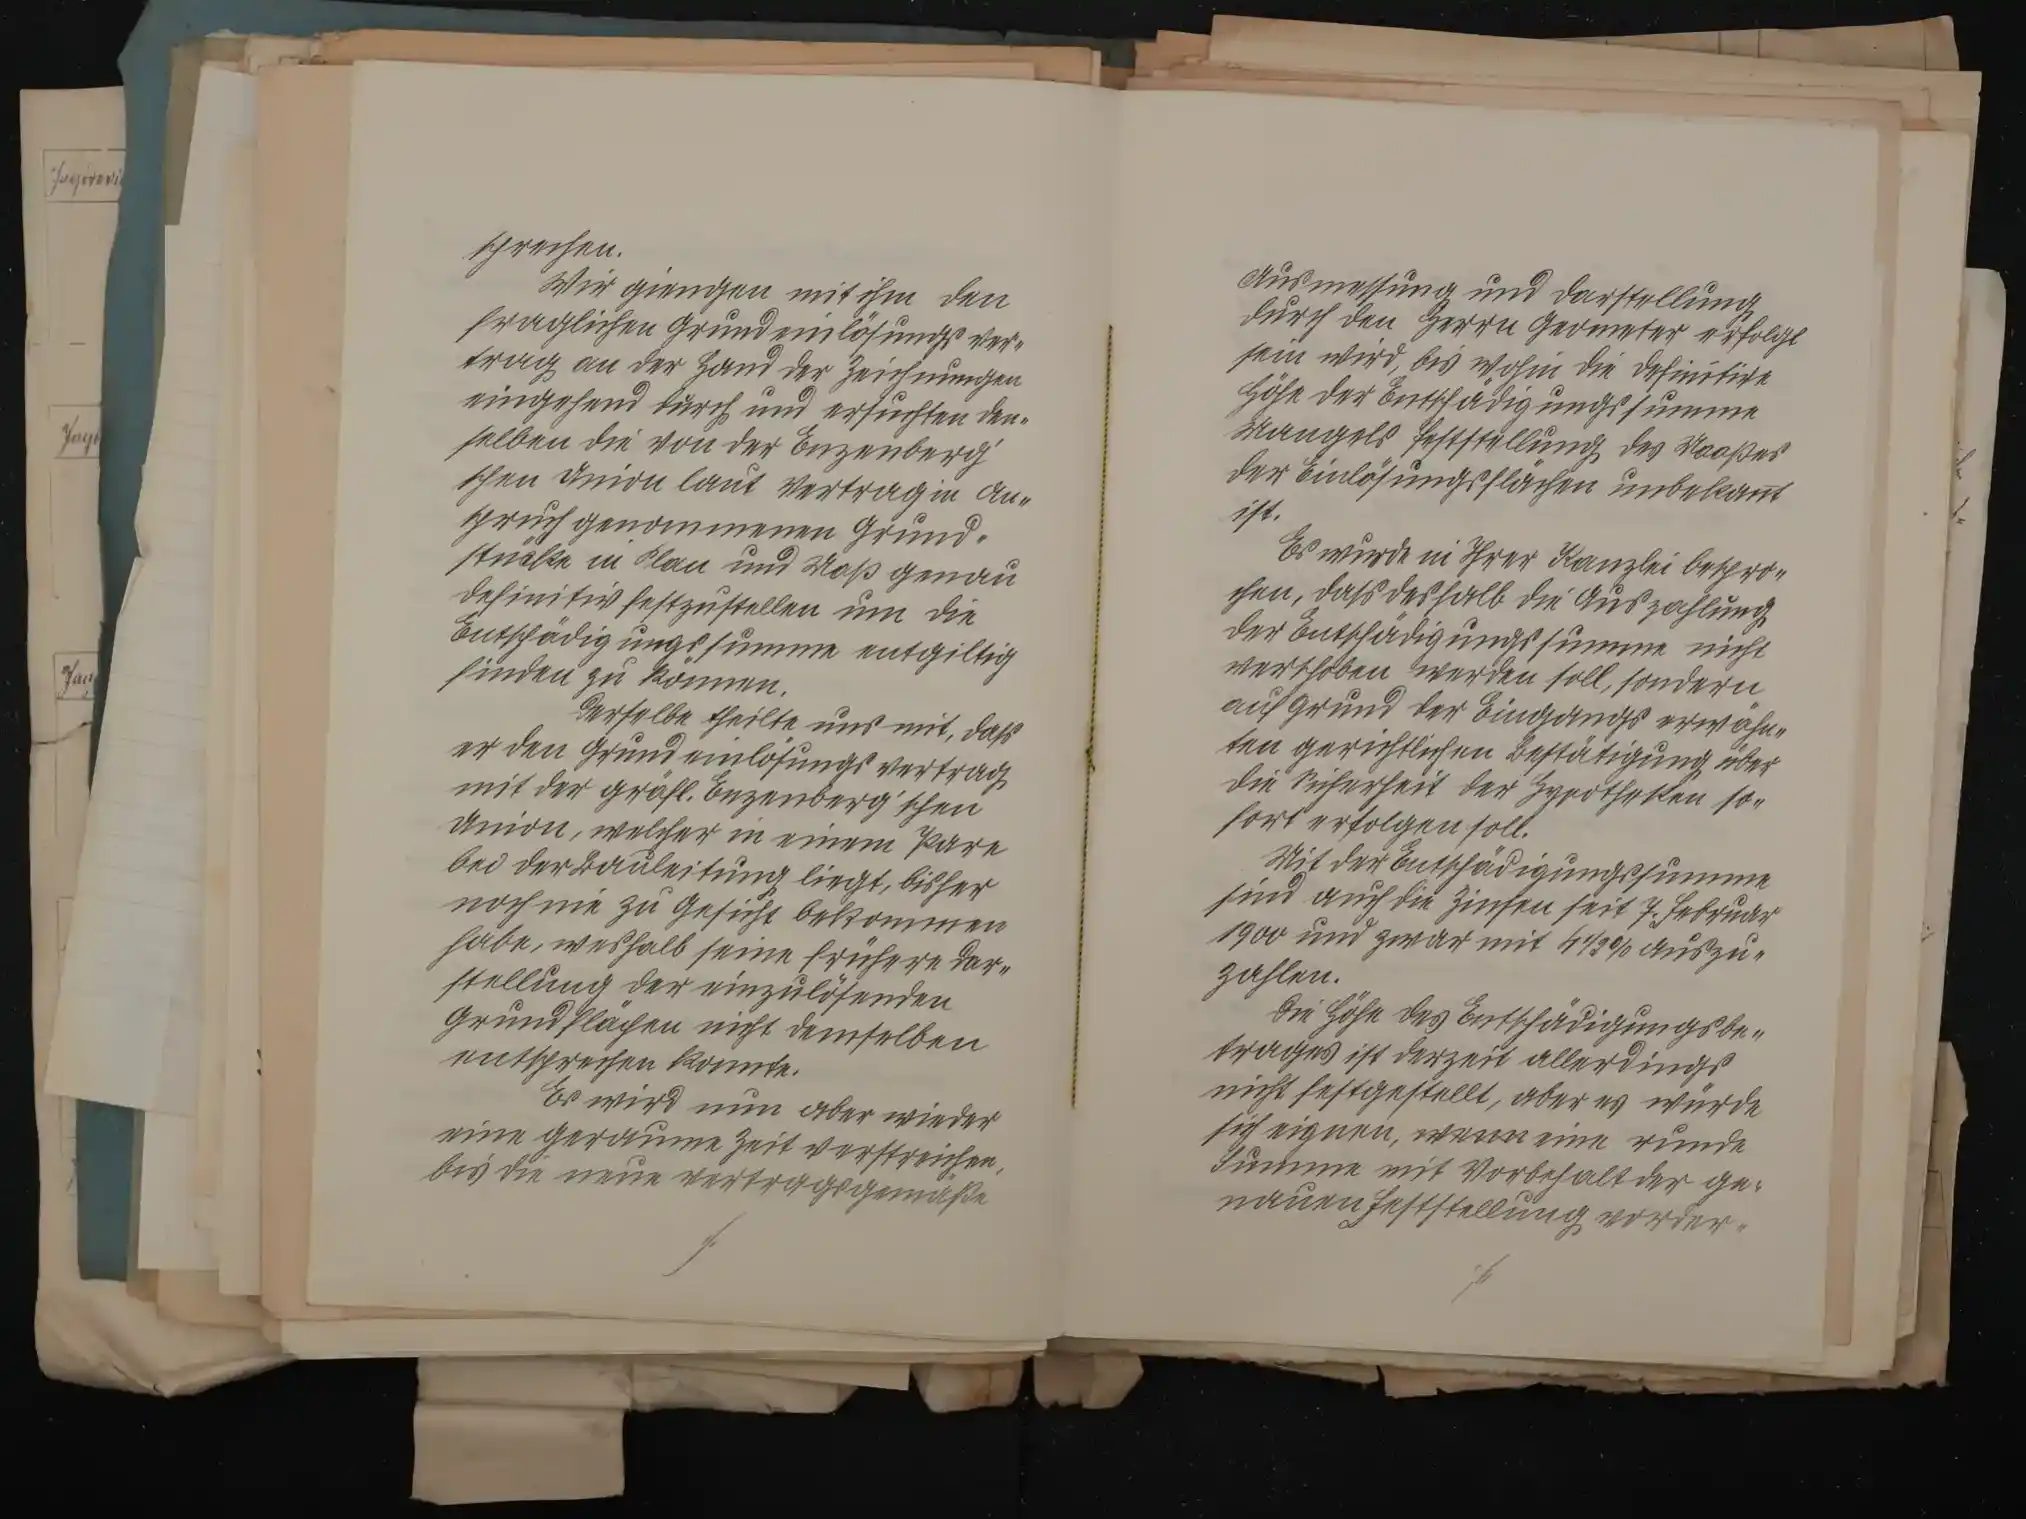 sprechen.
Wir giengen mit ihm den
fraglichen Grundeinlösungsver-
trag an der Hand der Zeichnungen
eingehend durch und ersuchten den-
selben die von der Enzenberg'
schen Union laut Vertrag in An-
spruch genommenen Grund-
stücke in Plan und Maß genau
definitiv festzustellen um die
Entschädigungssumme entgiltig
finden zu können.
Derselbe theilte uns mit, dass
er den Grundeinlösungsvertrag
mit der gräfl. Enzenberg'schen
Union, welcher in einem Pare
bei der Bauleitung liegt, bisher
noch nie zu Gesicht bekommen
habe, weshalb seine frühere Dar-
stellung der einzulösenden
Grundflächen nicht demselben
entsprechen konnte.
Es wird nun aber wieder
eine geraume Zeit verstreichen,
bis die neue vertragsgemäße
Ausmessung und Darstellung
durch den Herrn Geometer erfolgt
sein wird, bis wohin die definitive
Höhe der Entschädigungssumme
Mangels Feststellung des Maaßes
der Einlösungsflächen unbekannt
ist.
Es wurde in Ihrer Kanzlei bespro-
chen, dass deshalb die Auszahlung
der Entschädigungssumme nicht
verschoben werden soll, sondern
auf Grund der Eingangs erwähn-
ten gerichtlichen Bestätigung über
die Sicherheit der Hypotheken so-
fort erfolgen soll.
Mit der Entschädigungssumme
sind auch die Zinsen seit 7. Februar
1900 und zwar mit 4 1/2 % auszu-
zahlen.
Die Höhe des Entschädigungsbe-
trages ist derzeit allerdings
nicht festgestellt, aber es würde
sich eignen, wenn eine runde
Summe mit Vorbehalt der ge-
nauen Feststellung vorder-